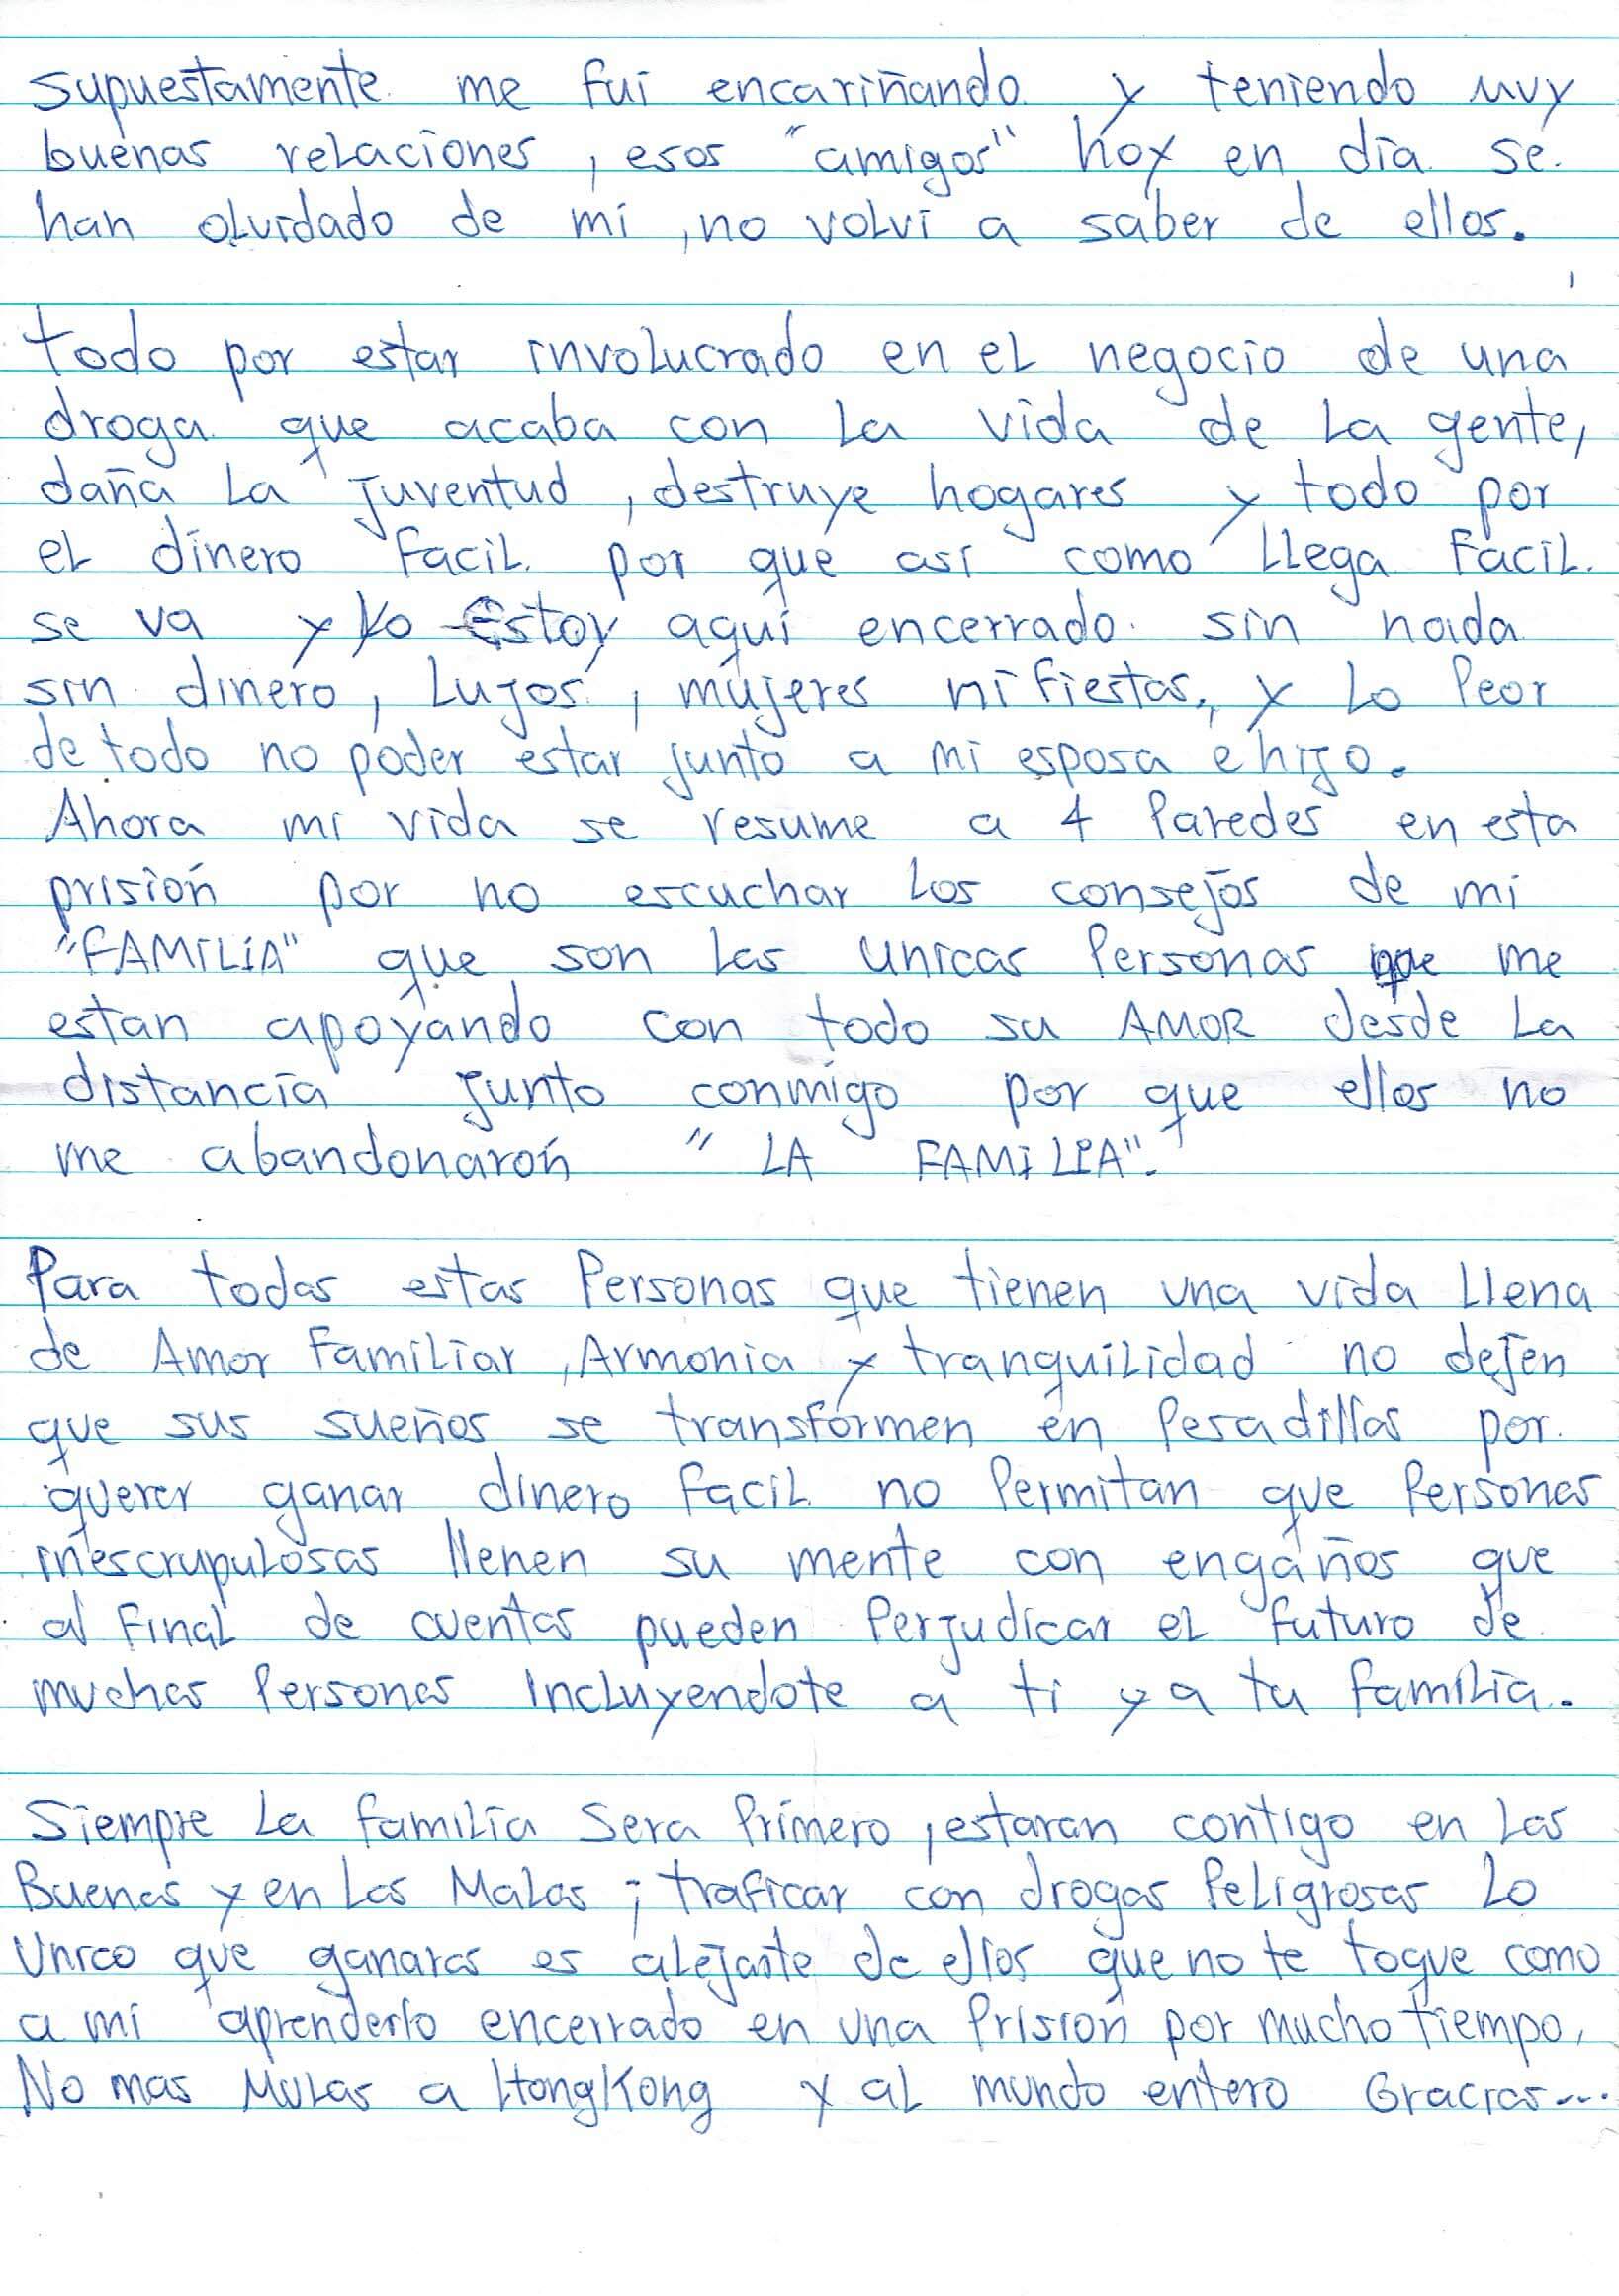 supuestamente me fui encariñando y teniendo muy
buenas relaciones, esos "amigos" hoy en dia se
han olvidado de mi, no volvi a saber de ellos.
todo por estar involucrado en el negocio de una
droga que acaba con la vida de la gente,
daña la juventud, destruye hogares y todo por
el dinero facil por que así como llega facil
se va y Yo Estoy aquí encerrado sin nada
sin dinero, lujos, mujeres ni fiestas, y lo Peor
de todo no poder estar junto a mi esposa e hijo.
Ahora mi vida se resume a 4 Paredes en esta
prisión por no escuchar los consejos de mi
"FAMILIA" que son las unicas Personas que me
estan apoyando con todo su AMOR desde la
distancia junto conmigo por que ellos no
me abandonarón "LA FAMILIA".
Para todas estas Personas que tienen una vida llena
de Amor Familiar, Armonia y tranquilidad no dejen
que sus sueños se transformen en Pesadillas por
querer ganar dinero facil no Permitan que Personas
inescrupulosas llenen su mente con engaños que
al Final de cuentas pueden Perjudicar el futuro de
muchas Personas incluyendote a ti y a tu familia.
Siempre la familia Sera Primero, estaran contigo en las
Buenas y en las Malas; traficar con drogas Peligrosas lo
Unico que ganaras es alejarte de ellos que no te toque como
a mi aprenderlo encerrado en una Prisión por mucho tiempo,
No mas Mulas a HongKong y al mundo entero Gracias...